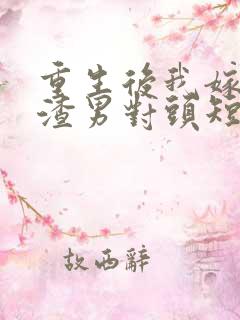 重生後我嫁
渣男對頭短
故西辭